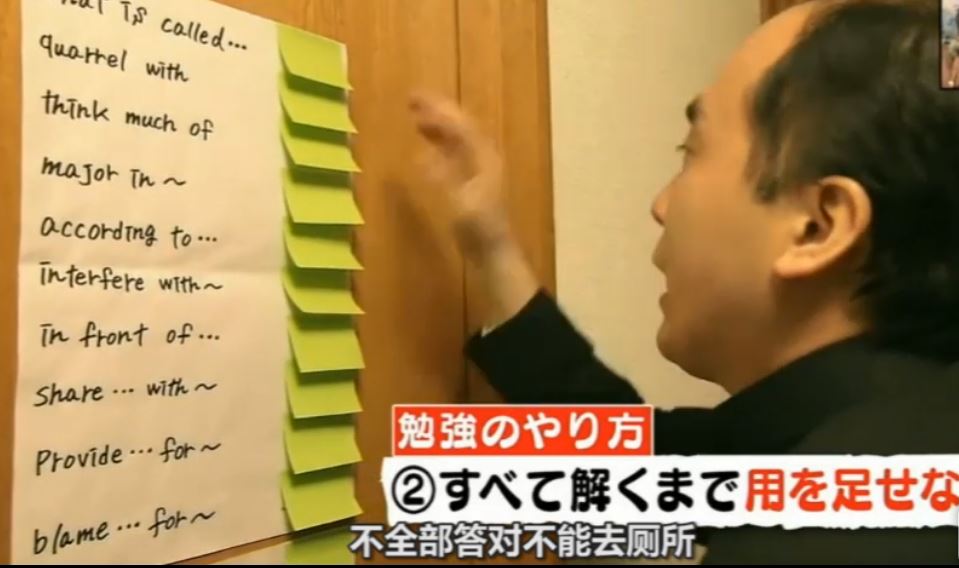 is called...
quarrel with
think much of
major in ~
according to...
interfere with~
in front of...
share... with~
Provide... for~
blame... for~
勉強のやり方
②すべて解くまで用を足せな
不全部答对不能去厕所